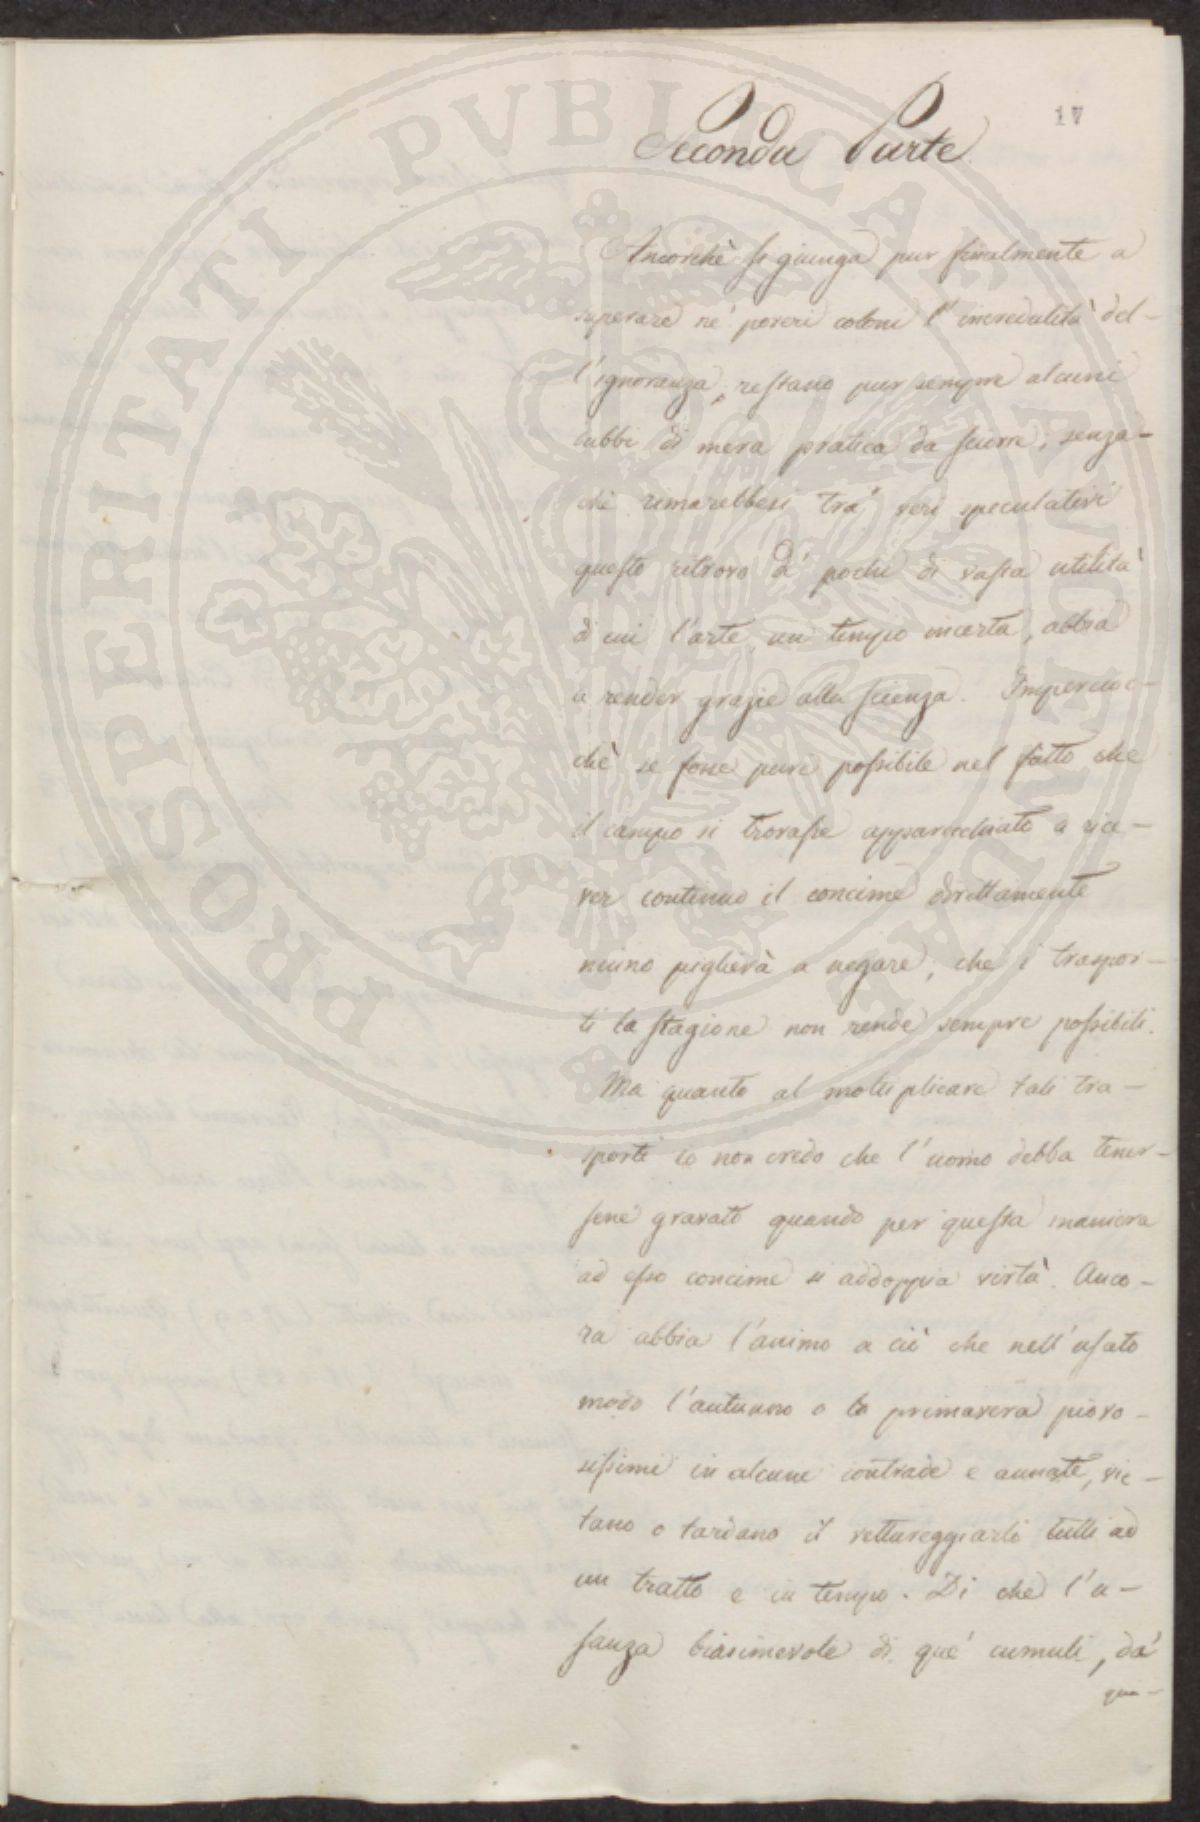 17
Seconda Parte
Ancorchè si giunga pur finalmente a
superare ne' poveri coloni l'incredulità del-
l'ignoranza, restano pur sempre alcuni
dubbi di mera pratica da sciorre, senza-
chè rimarebbesi tra' veri speculativi
questo ritrovo da' pochi di vasta utilità
di cui l'arte, un tempo incerta, abbia
a render grazie alla scienza. Impercioc-
chè se fosse pure possibile nel fatto che
il campo si trovasse apparecchiato a rice-
ver continuo il concime direttamente
niuno piglierà a negare, che i traspor-
ti la stagione non rende sempre possibili.
Ma quanto al moltiplicare tali tra-
sporti io non credo che l'uomo debba tener-
sene gravato quando per questa maniera
ad esso concime si addoppia virtà. Anco-
ra abbia l'animo a ciò che nell'usato
modo l'autunno o la primavera piovo-
sissimi in alcune contrade e annate, vie-
tano o tardano il vettureggiarli tutti ad
un tratto e in tempo. Di che l'u-
sanza biasimevole di que' cumuli, da'
qua-
PROSPERITATI PVBLICAE AVGENDAE